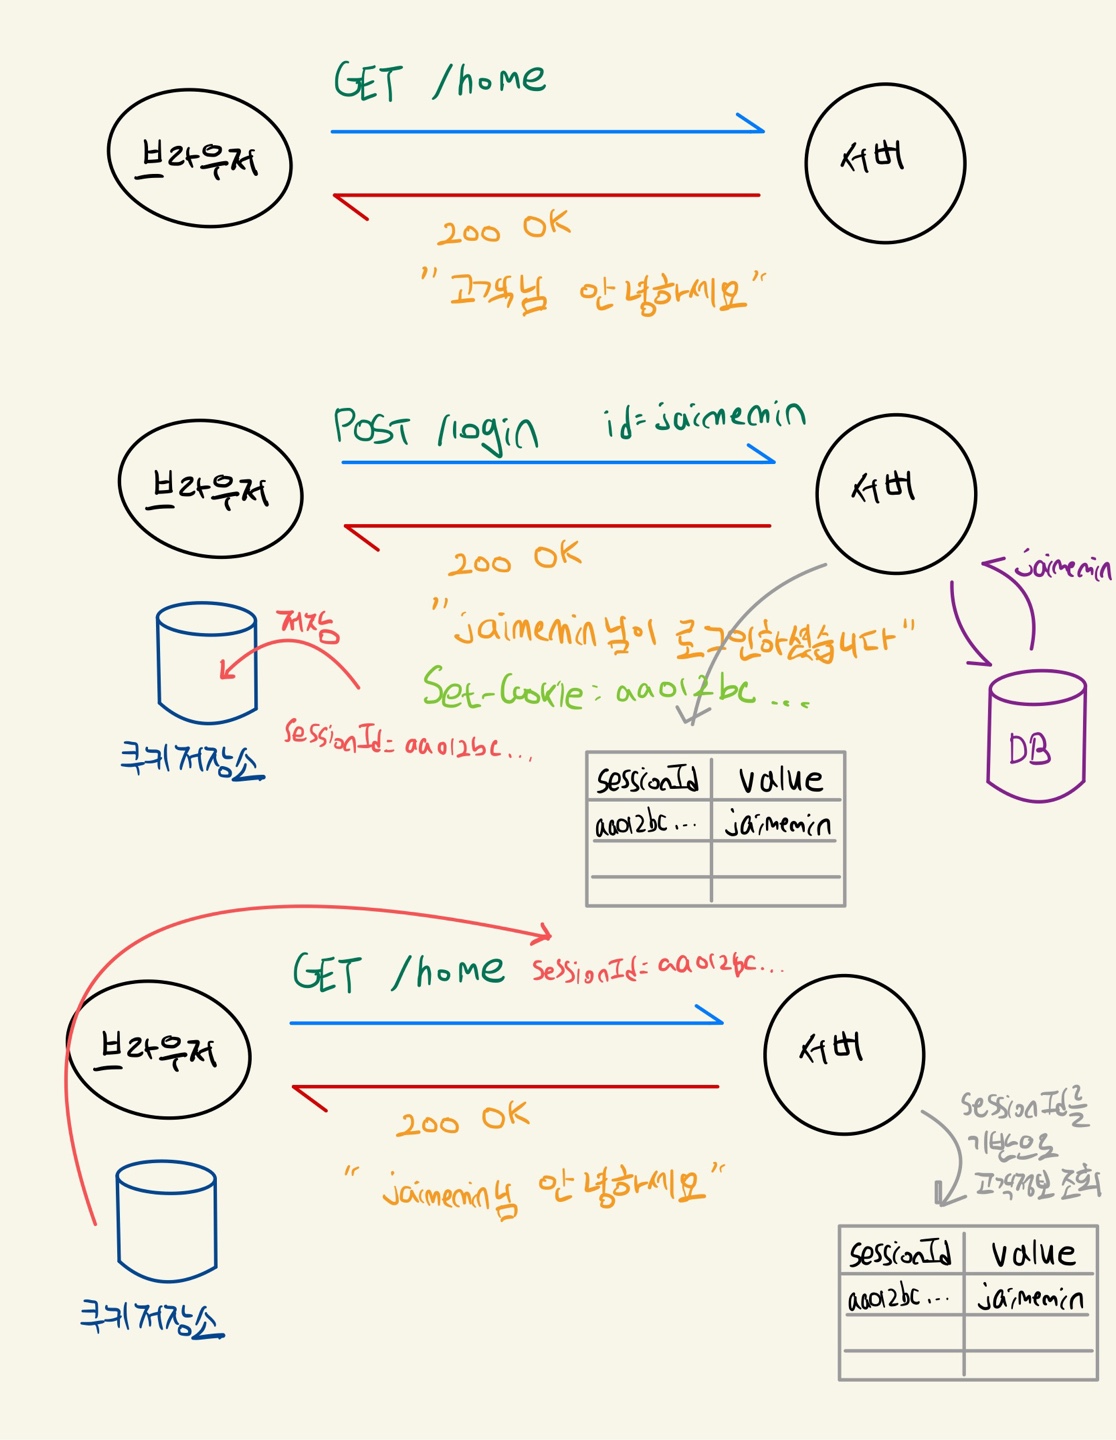 GET /home
브라우저
서버
200 OK
"고객님 안녕하세요"
POST /login id=jaimemin
브라우저
서버
200 OK
jaimemin
"jaimemin님이 로그인하셨습니다"
저장
Set-Cookie: aa012bc...
sessionId=aa012bc...
쿠키저장소
DB
sessionId value
aa012bc... jaimemin
GET /home sessionId=aa012bc...
브라우저
서버
200 OK
"jaimemin님 안녕하세요"
sessionId를
기반으로
고객정보 조회
쿠키저장소
sessionId value
aa012bc... jaimemin